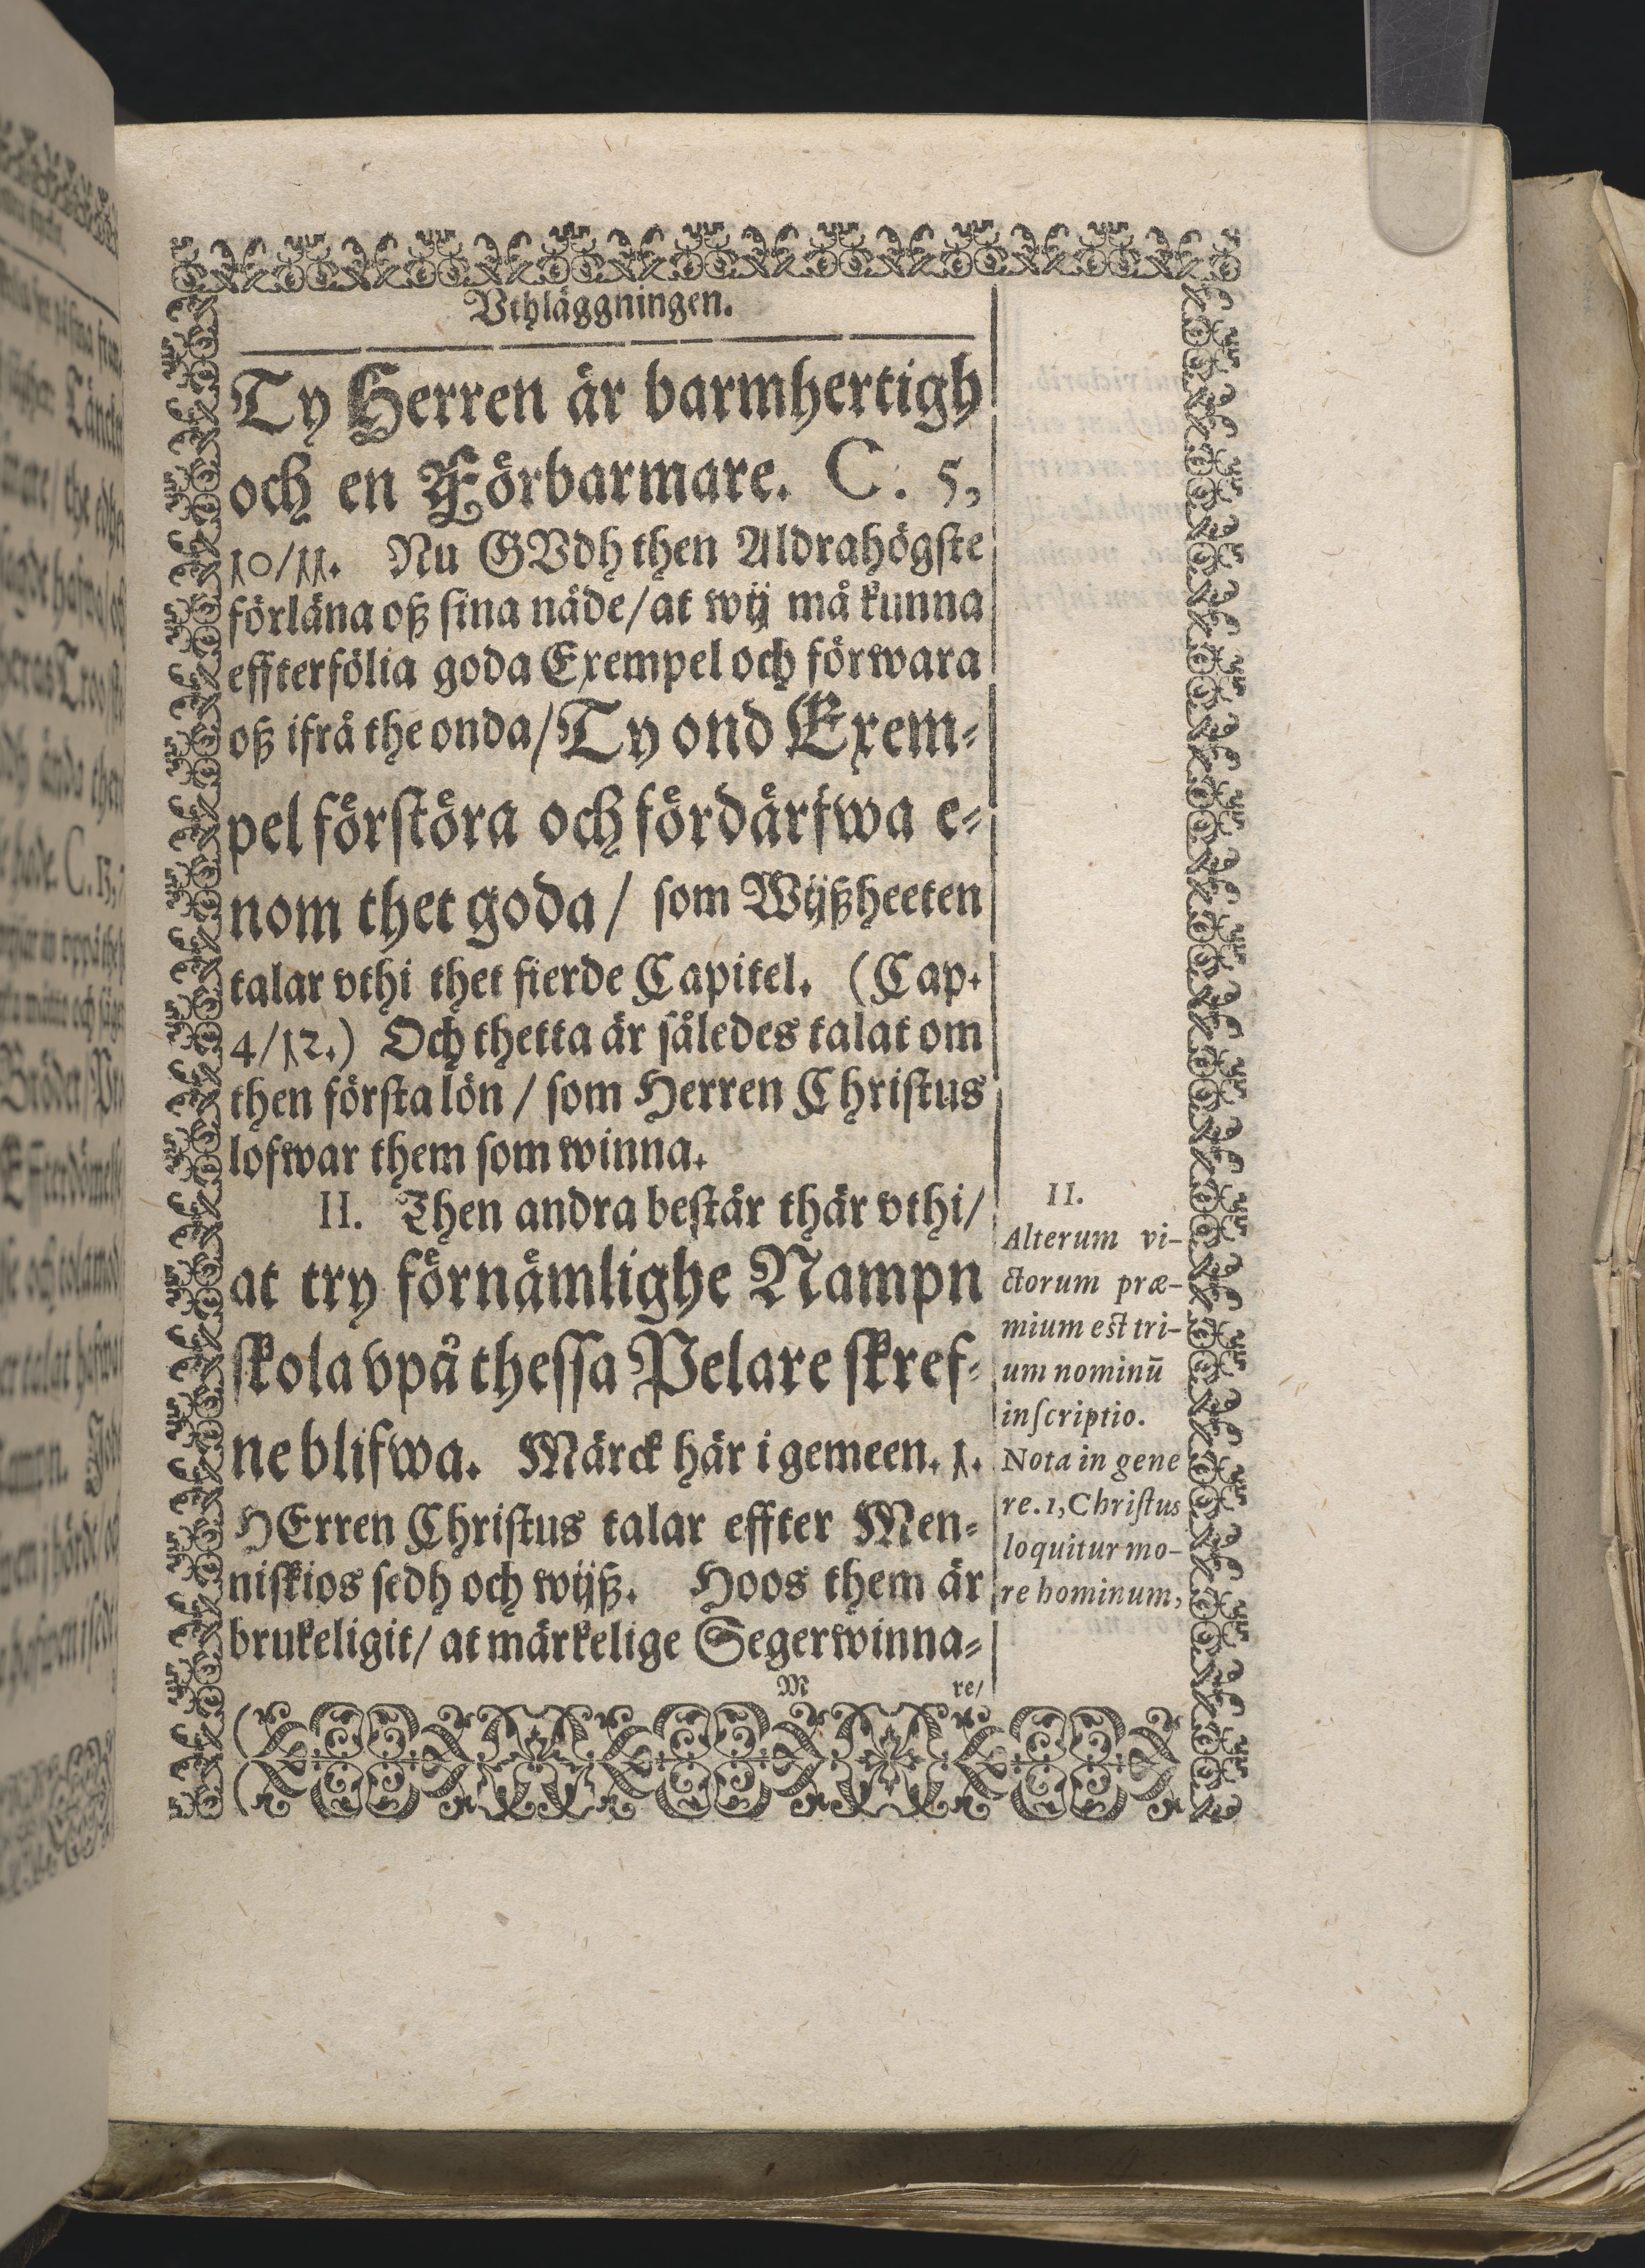 Vthläggningen.
Ty Herren är barmhertigh
och en Förbarmare. C. 5,
10/11. Nu GVdh then Aldrahögſte
förläna oß ſina näde/at wij må kunna
effterfölia goda Exempel och förwara
oß ifrå the onda/Ty ond Exem-
pel förſtöra och fördärfwa e-
nom thet goda/ ſom Wijßheeten
talar vthi thet fierde Capitel. (Cap.
4/12.) Och thetta är således talat om
then förſta lön / ſom Herren Chriſtus
lofwar them ſom winna.
II. Then andra beſtår thär vthi/
at try förnämlighe Nampn
ſkola vpå theſſa Pelare ſkref-
ne blifwa. Märck här i gemeen. 1.
HErren Chriſtus talar effter Men-
niſkios ſedh och wijß. Hoos them är
brukeligit/ at märkelige Segerwinna-
M re/
II.
Alterum vi-
ctorum præ-
mium eſt tri-
um nominū
inſcriptio.
Nota in gene
re. 1, Chriſtus
loquitur mo-
re hominum,